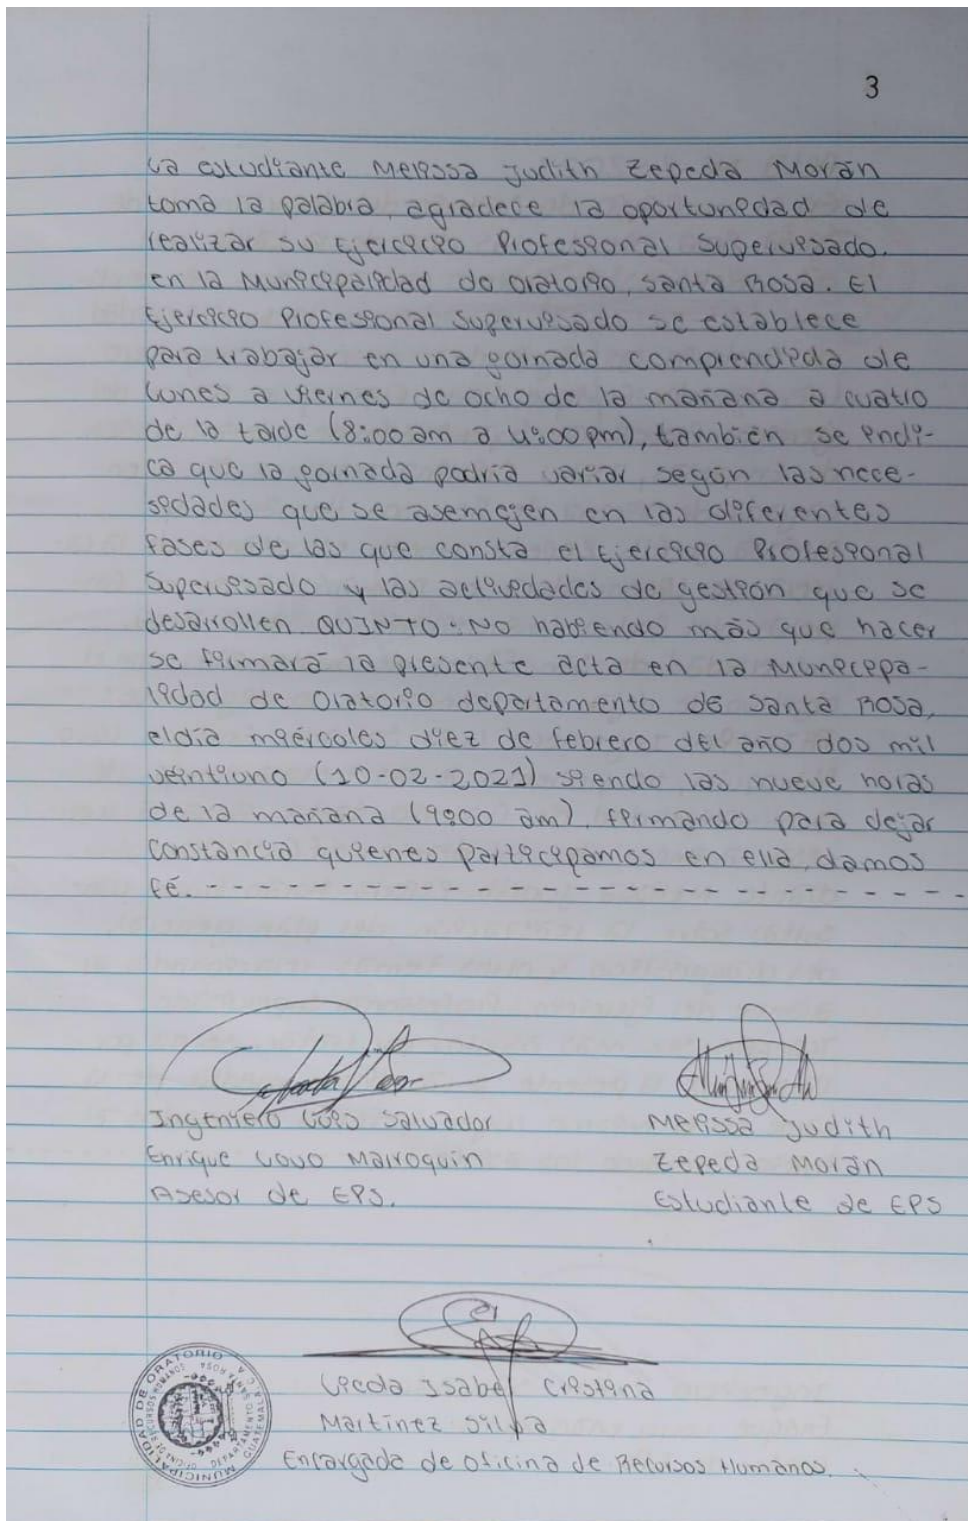 3
La estudiante Melissa Judith Zepeda Morán
toma la palabra, agradece la oportunidad de
realizar su Ejercicio Professional Supervisado.
en la Municipalidad de Oratorio, Santa Rosa. El
Ejercicio Professional Supervisado se establece
para trabajar en una gornada comprendida de
lunes a viernes de ocho de la mañana a cuatro
de la tarde (8:00 am a 4:00 pm), también se indi-
ca que la gornada podría variar según las nece-
sidades que se asemejen en las diferentes
fases de las que consta el Ejercicio Profesional
Supervisado y las actividades de gestión que se
desarrollen QUINTO: No habiendo más que hacer
se firmará la presente acta en la Municipa-
lidad de Oratorio departamento de Santa Rosa,
el día miércoles diez de febrero del año dos mil
veintiuno (10-02-2021) siendo las nueve horas
de la mañana (9:00 am), firmando para dejar
constancia quienes participamos en ella, damos
fé. - - - - - - - - - - - - - - - - - - - - - - - - - - - - -
Ingeniero Salvador
Enrique Lovo Marroquín
Asesor de EPS.
Melissa Judith
Zepeda Morán
Estudiante de EPS
Isabel Cristina
Martínez Silva
Encargada de Oficina de Recursos Humanos.
MUNICIPALIDAD DE ORATORIO
OFICINA DE RECURSOS HUMANOS
DEPARTAMENTO SANTA ROSA
GUATEMALA C.A.